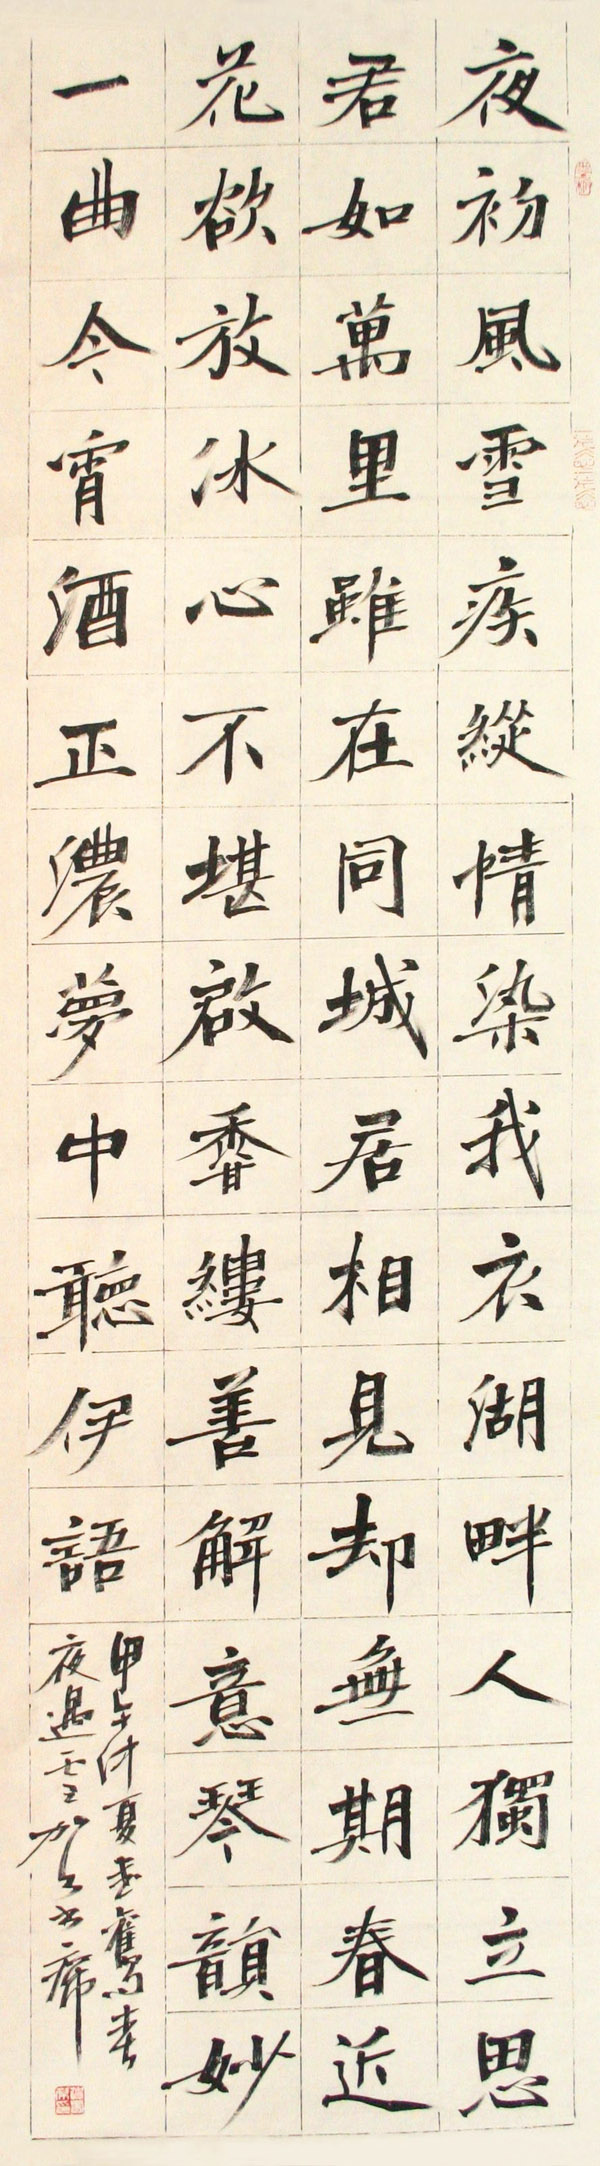 夜初風雪疾縱情染我衣湖畔人獨立思
君如萬里雖在同城居相見却無期春近
花欲放冰心不堪啟香縷善解意琴韻妙
一曲今宵酒正濃夢中聽伊語
甲午仲夏書舊
夜過